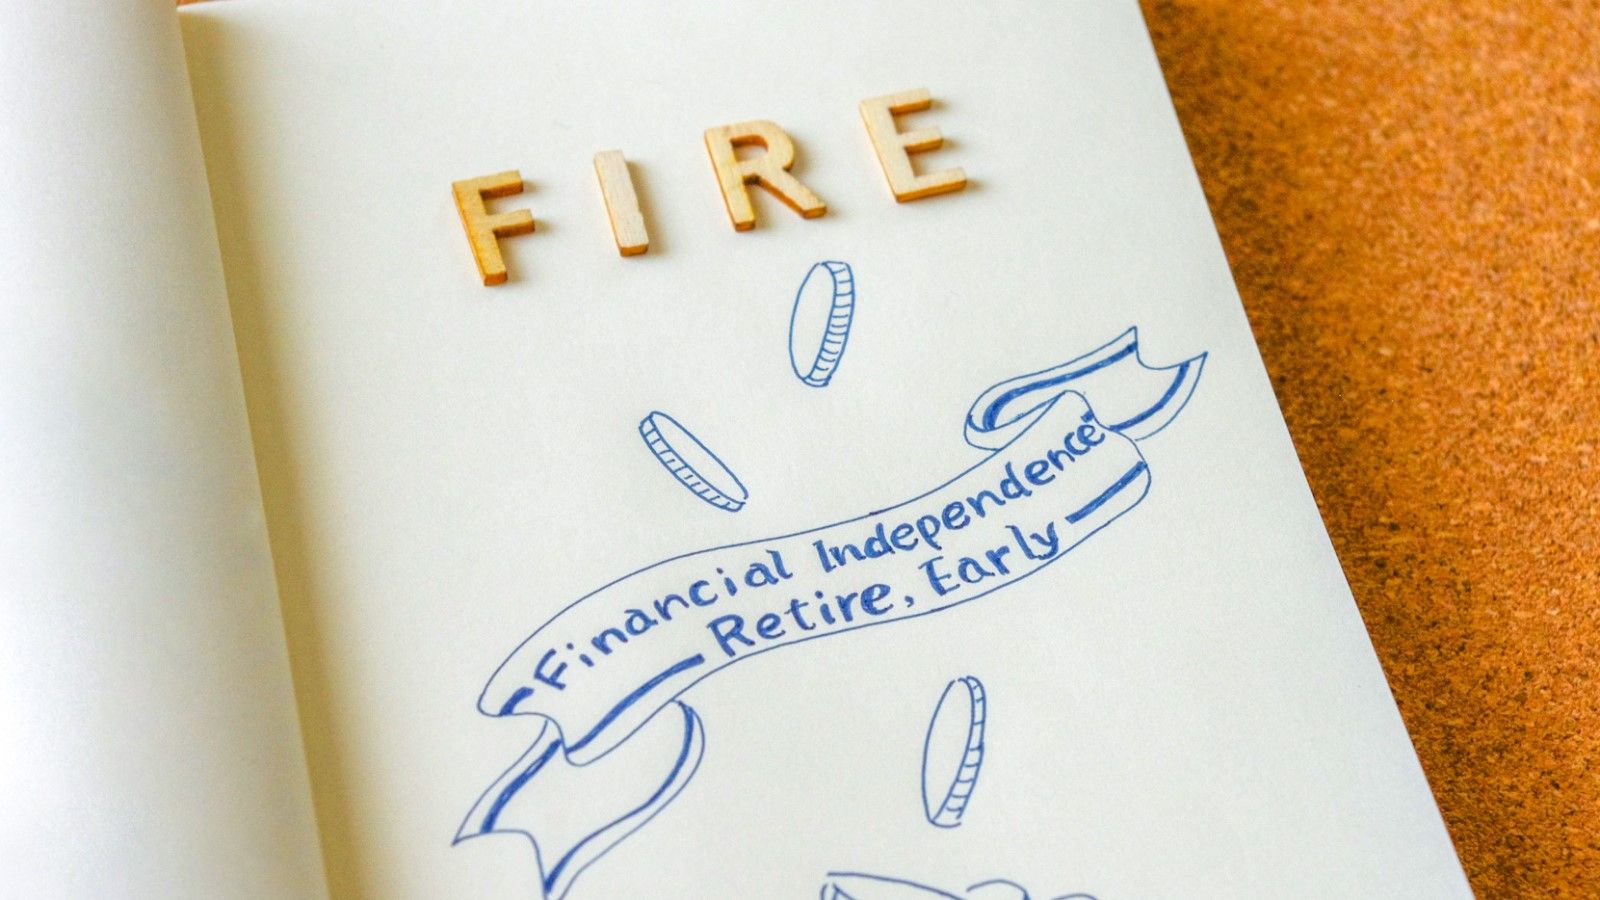 FIRE
Financial Independence
Retire, Early